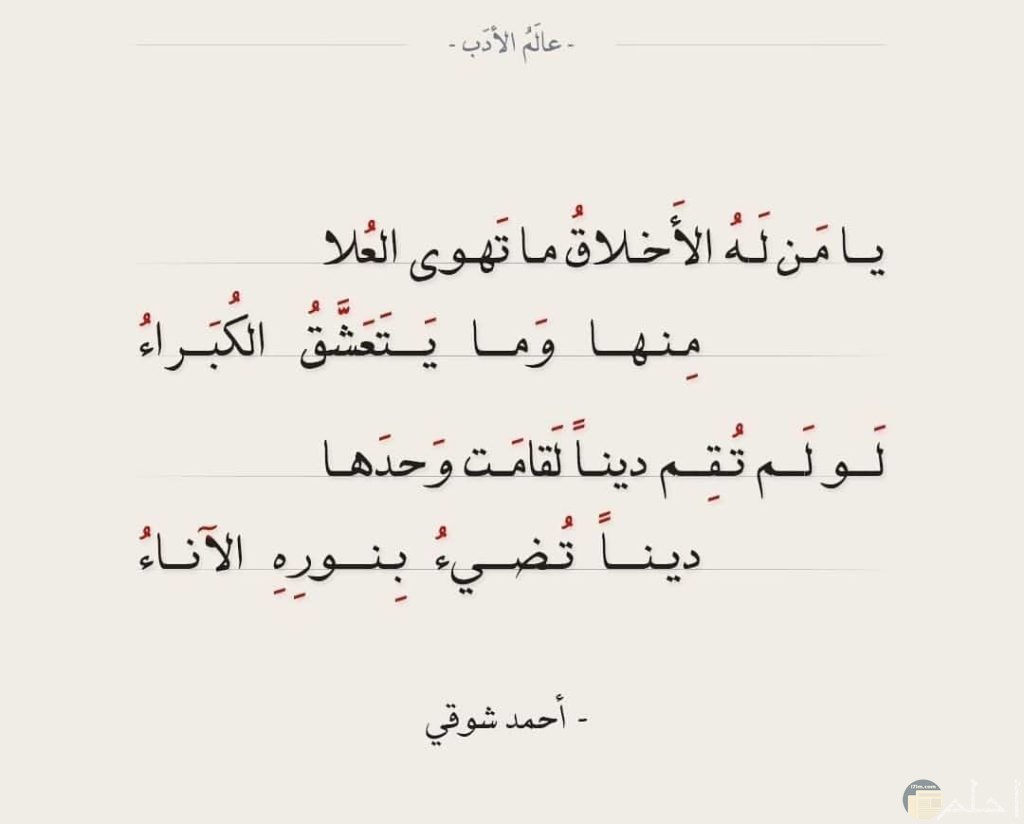 - عالَمُ الأدَب -
يا مَن لَهُ الأَخلاقُ ما تَهوى العُلا
مِنها وَما يَتَعَشَّقُ الكُبَراءُ
لَو لَم تُقِم ديناً لَقامَت وَحدَها
ديناً تُضيءُ بِنورِهِ الآناءُ
- أحمد شوقي
احلم